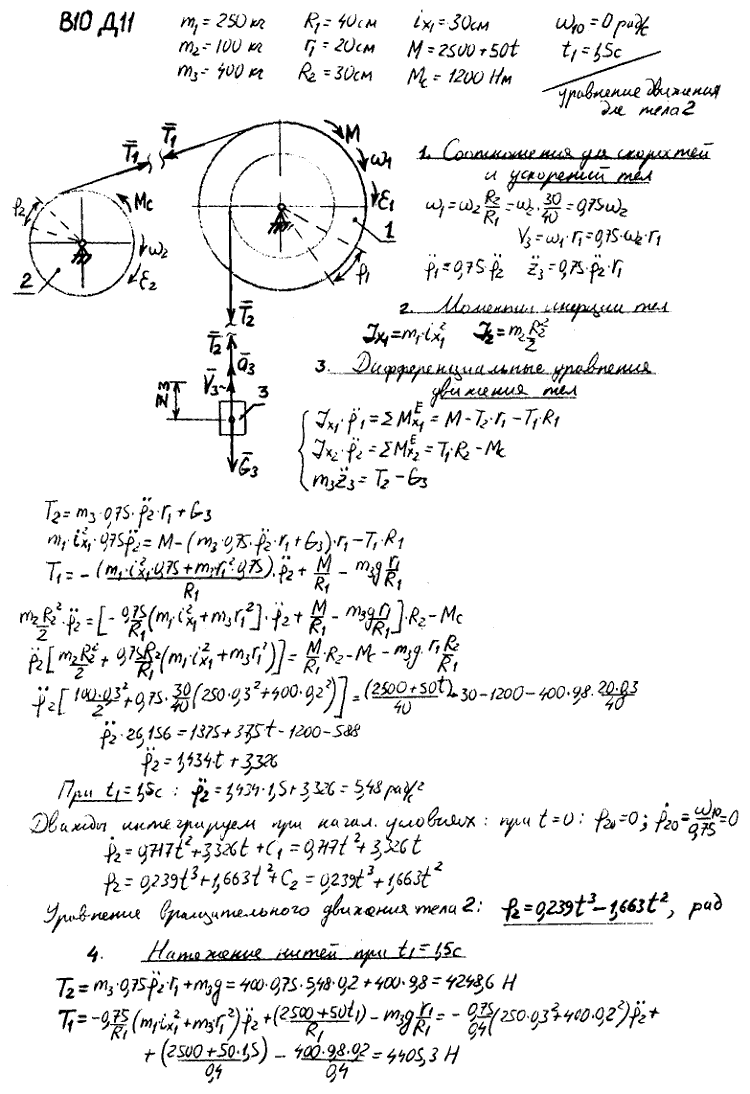 В10 Д11
m₁ = 250 кг R₁ = 40 см i_x1 = 30 см ω₁₀ = 0 рад/с
m₂ = 100 кг r₁ = 20 см M = 2500 + 50t t₁ = 1,5 с
m₃ = 400 кг R₂ = 30 см M_c = 1200 Нм
уравнение движения
для тела 2
T̄₁ T̄₁ M
M_c ω₁
φ₂ ε₁
ω₂ 1
2 ε₂ φ₁
T̄₂
T̄₂
ā₃
V̄₃
3
Ḡ₃
1. Соотношения для скоростей
и ускорений тел
ω₁ = ω₂ R₂/R₁ = ω₂ · 30/40 = 0,75ω₂
V₃ = ω₁·r₁ = 0,75·ω₂·r₁
φ̈₁ = 0,75·φ̈₂ z̈₃ = 0,75·φ̈₂·r₁
2. Моменты инерции тел
J_x1 = m₁·i_x1² J₂ = m₂R₂²/2
3. Дифференциальные уравнения
движения тел
J_x1·φ̈₁ = ΣM_x1^E = M - T₂·r₁ - T₁·R₁
J_x2·φ̈₂ = ΣM_x2^E = T₁·R₂ - M_c
m₃z̈₃ = T₂ - G₃
T₂ = m₃·0,75·φ̈₂·r₁ + G₃
m₁·i_x1²·0,75φ̈₂ = M - (m₃·0,75·φ̈₂·r₁ + G₃)·r₁ - T₁·R₁
T₁ = - (m₁·i_x1²·0,75 + m₃r₁²·0,75)/R₁ · φ̈₂ + M/R₁ - m₃g r₁/R₁
m₂R₂²/2 · φ̈₂ = [- 0,75/R₁ (m₁·i_x1² + m₃r₁²]·φ̈₂ + M/R₁ - m₃g r₁/R₁]·R₂ - M_c
φ̈₂[m₂R₂²/2 + 0,75R₂/R₁ (m₁·i_x1² + m₃r₁²)] = M/R₁ · R₂ - M_c - m₃g·r₁R₂/R₁
φ̈₂[100·0,3²/2 + 0,75·30/40 (250·0,3² + 400·0,2²)] = (2500+50t)/40 · 30 - 1200 - 400·9,8·20·0,3/40
φ̈₂·26,156 = 1875 + 37,5t - 1200 - 588
φ̈₂ = 1,434·t + 3,326
При t₁ = 1,5с : φ̈₂ = 1,434·1,5 + 3,326 = 5,48 рад/с²
Дважды интегрируем при начал. условиях: при t = 0: φ₂₀ = 0; φ̇₂₀ = ω₁₀/0,75 = 0
φ̇₂ = 0,717t² + 3,326t + C₁ = 0,717t² + 3,326t
φ₂ = 0,239t³ + 1,663t² + C₂ = 0,239t³ + 1,663t²
Уравнение вращательного движения тела 2: φ₂ = 0,239t³ - 1,663t², рад
4. Натяжение нитей при t₁ = 1,5с
T₂ = m₃·0,75φ̈₂·r₁ + m₃g = 400·0,75·5,48·0,2 + 400·9,8 = 4248,6 Н
T₁ = - 0,75/R₁ (m₁i_x1² + m₃r₁²)φ̈₂ + (2500+50t₁)/R₁ - m₃g r₁/R₁ = - 0,75/0,4 (250·0,3² + 400·0,2²)φ̈₂ +
+ (2500+50·1,5)/0,4 - 400·9,8·0,2/0,4 = 4405,3 Н